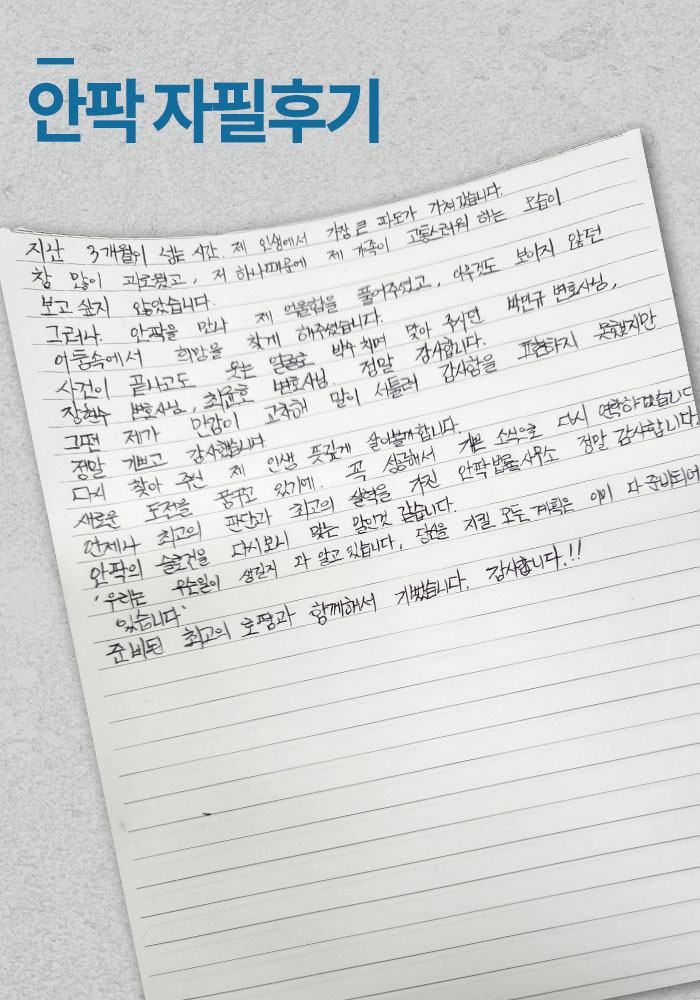 안팍 자필후기
지난 3개월이 넘는 시간. 제 인생에서 가장 큰 파도가 가져갔습니다.
참 많이 괴로웠고, 저 하나때문에 제 가족이 고통스러워 하는 모습이
보고 싶지 않았습니다.
그러나. 안팍을 만나 제 억울함을 풀어주셨고, 아무것도 보이지 않던
어둠속에서 희망을 찾게 해주셨습니다.
사건이 끝나고도 웃는 얼굴로 박수 치며 맞아 주시던 박민규 변호사님,
장현수 변호사님, 최균호 변호사님 정말 감사합니다.
그땐 제가 만감이 교차해 말이 서툴러 감사함을 표현하지 못했지만
정말 기쁘고 감사했습니다
다시 찾아 주신 제 인생 뜻깊게 살아볼까합니다.
새로운 도전을 꿈꾸고 있기에. 꼭 성공해서 기쁜 소식으로 다시 연락하겠습니다
언제나 최고의 판단과 최고의 실력을 가진 안팍법률사무소 정말 감사합니다.
안팍의 슬로건을 다시보니 맞는 말인것 같습니다.
'우리는 무슨일이 생길지 다 알고 있습니다, 당신을 지킬 모든 계획은 이미 다 준비되어
있습니다'
준비된 최고의 로펌과 함께해서 기뻤습니다. 감사합니다.!!